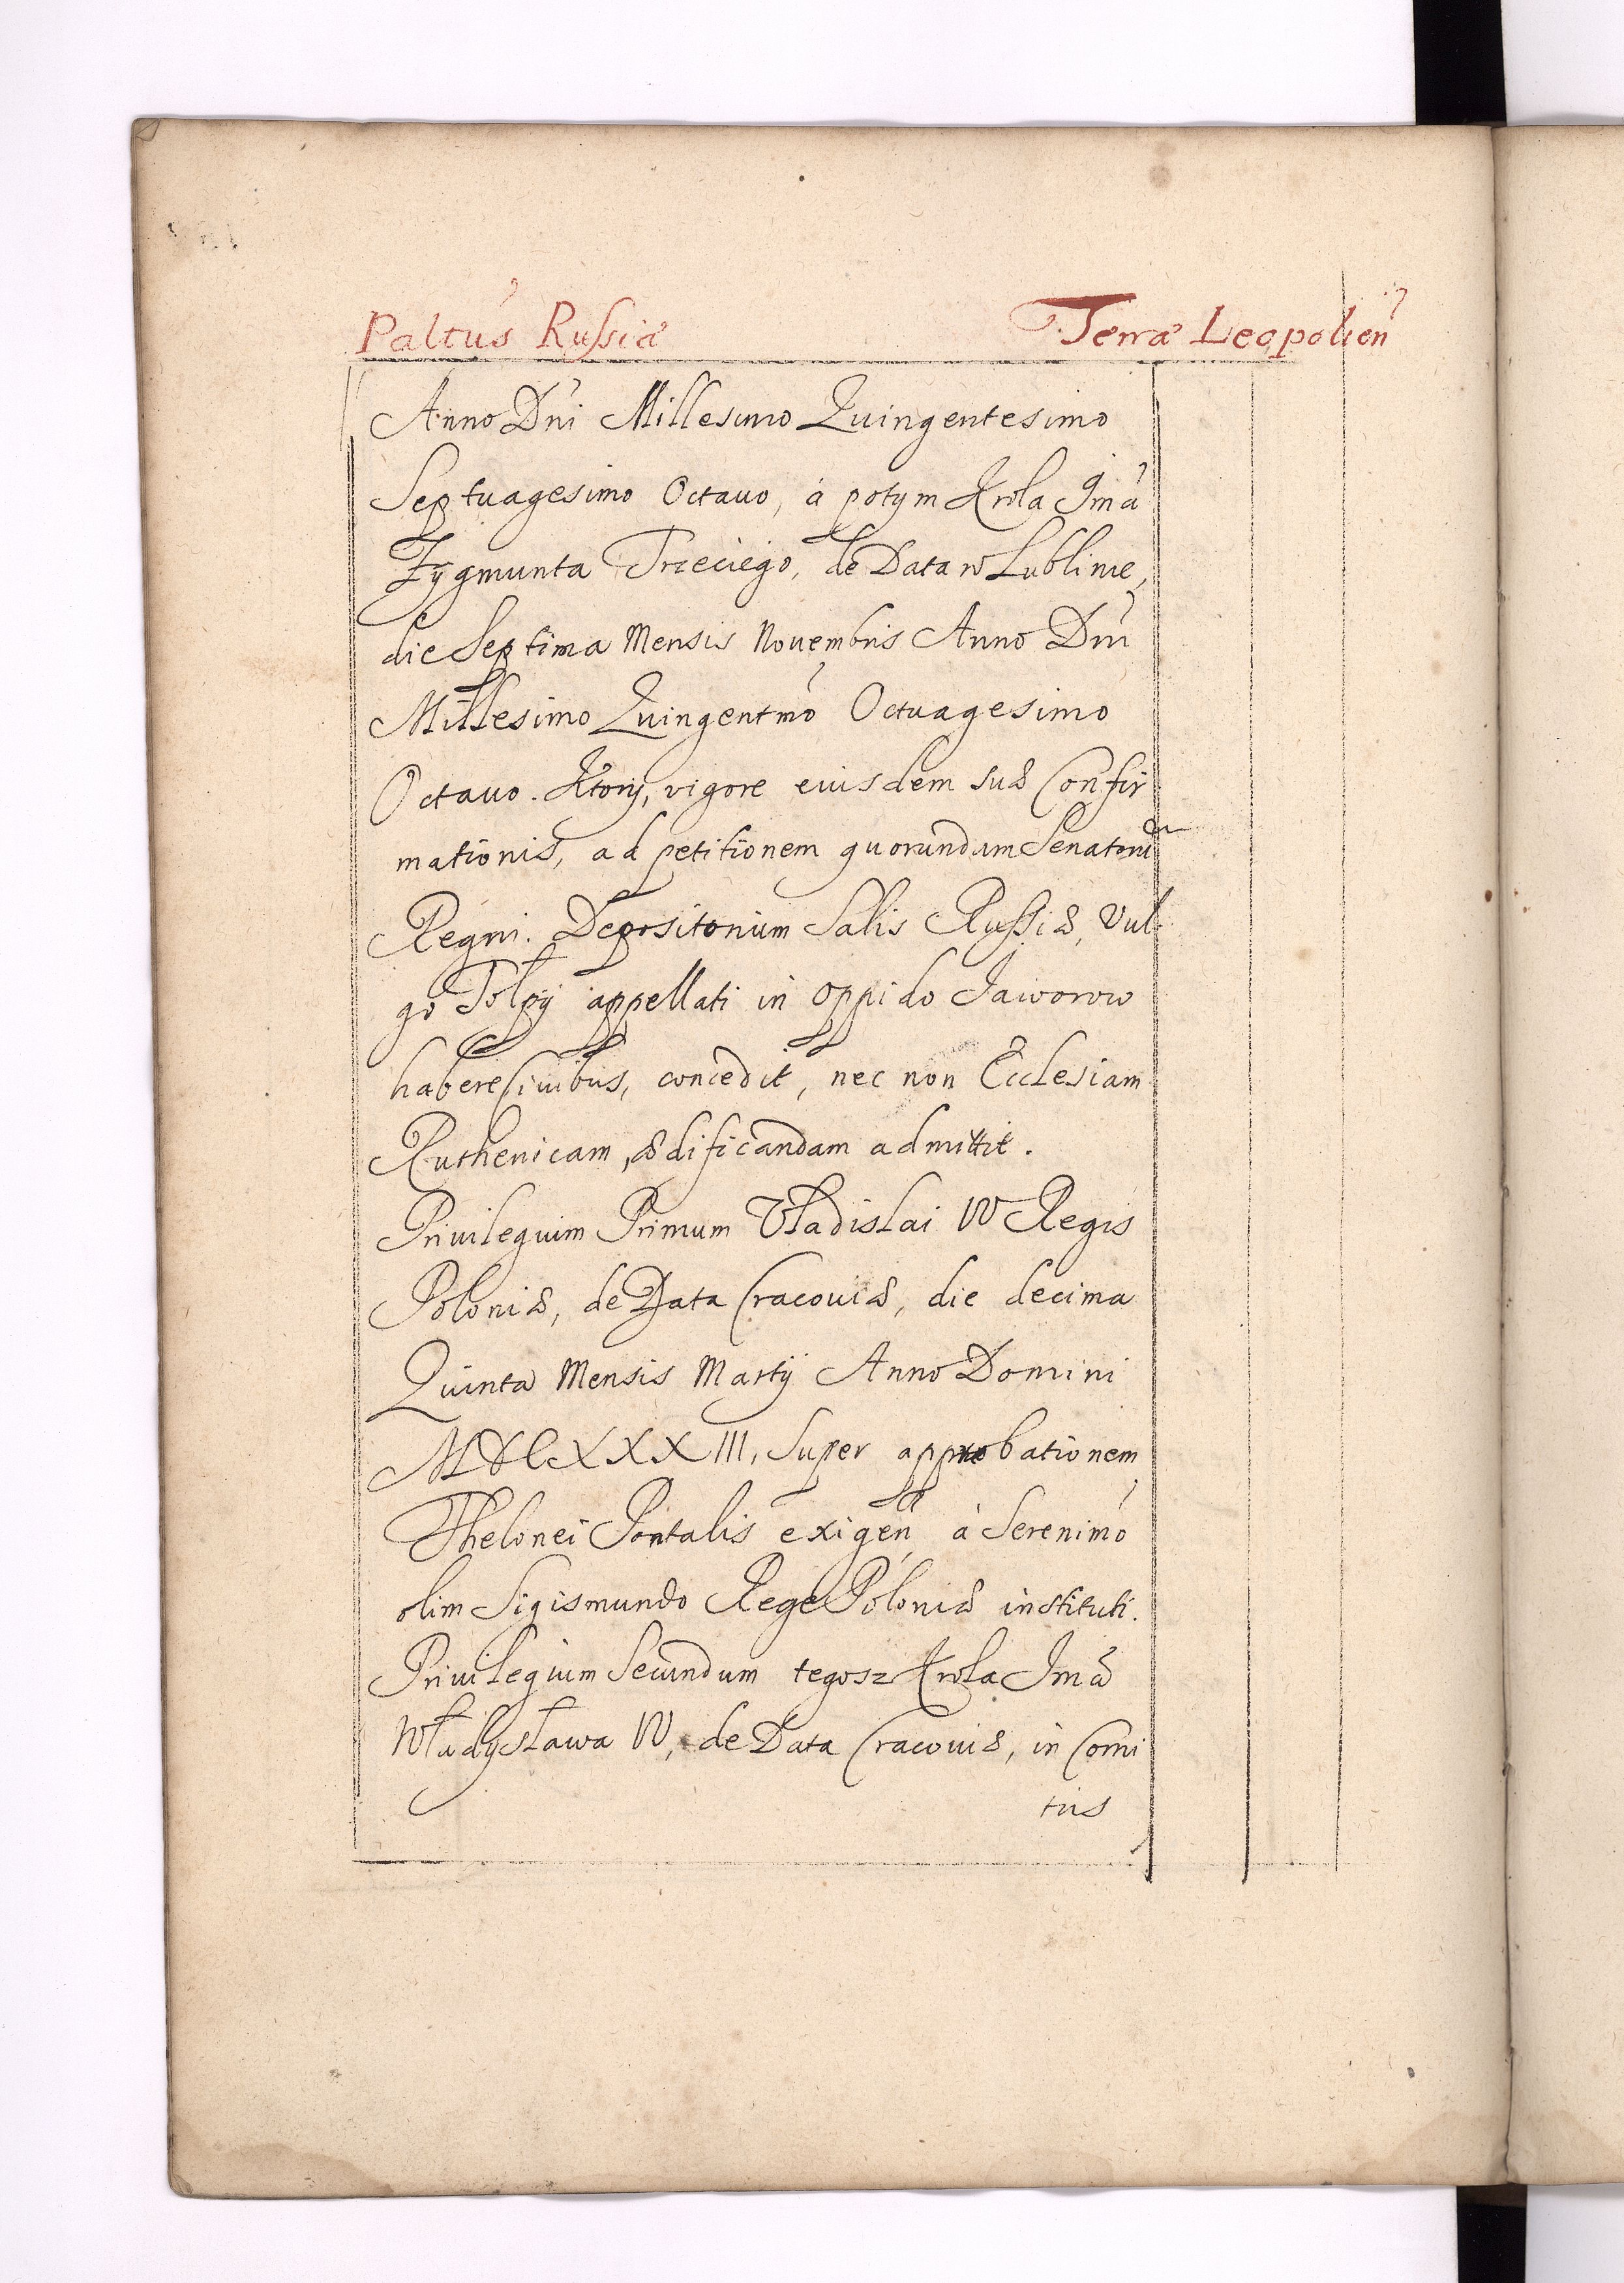 Paltus Russiæ Terræ Leopolien
Anno Dni Millesimo Quingentesimo
Septuagesimo Octauo, á potym Krola Jmci
Zygmunta Trzeciego, de Data w Lublinie,
die Septima Mensis Nouembris Anno Dni
Millesimo Quingentmo Octuagesimo
Octauo. Ktory, vigore eiusdem suæ Confir
mationis, ad petitionem quorundam Senatorum
Regni. Depositorium Salis Russiæ, vul-
go Tołpÿ appellati in oppido Jaworow
habere Ciuibus, concedit, nec non Ecclesiam
Ruthenicam, ædificandam admittit.
Priuilegium Primum Vladislai IV Regis
Poloniæ, de Data Cracouiæ, die decima
Quinta Mensis Martÿ Anno Domini
MDCXXXIII, Super approbationem
Thelonei Pontalis exigen à Serenimo
olim Sigismundo Rege Poloniæ instituti.
Priuilegium Secundum tegosz Krola Jmci
Władysława IV, de Data Cracouiæ, in Comi
tijs